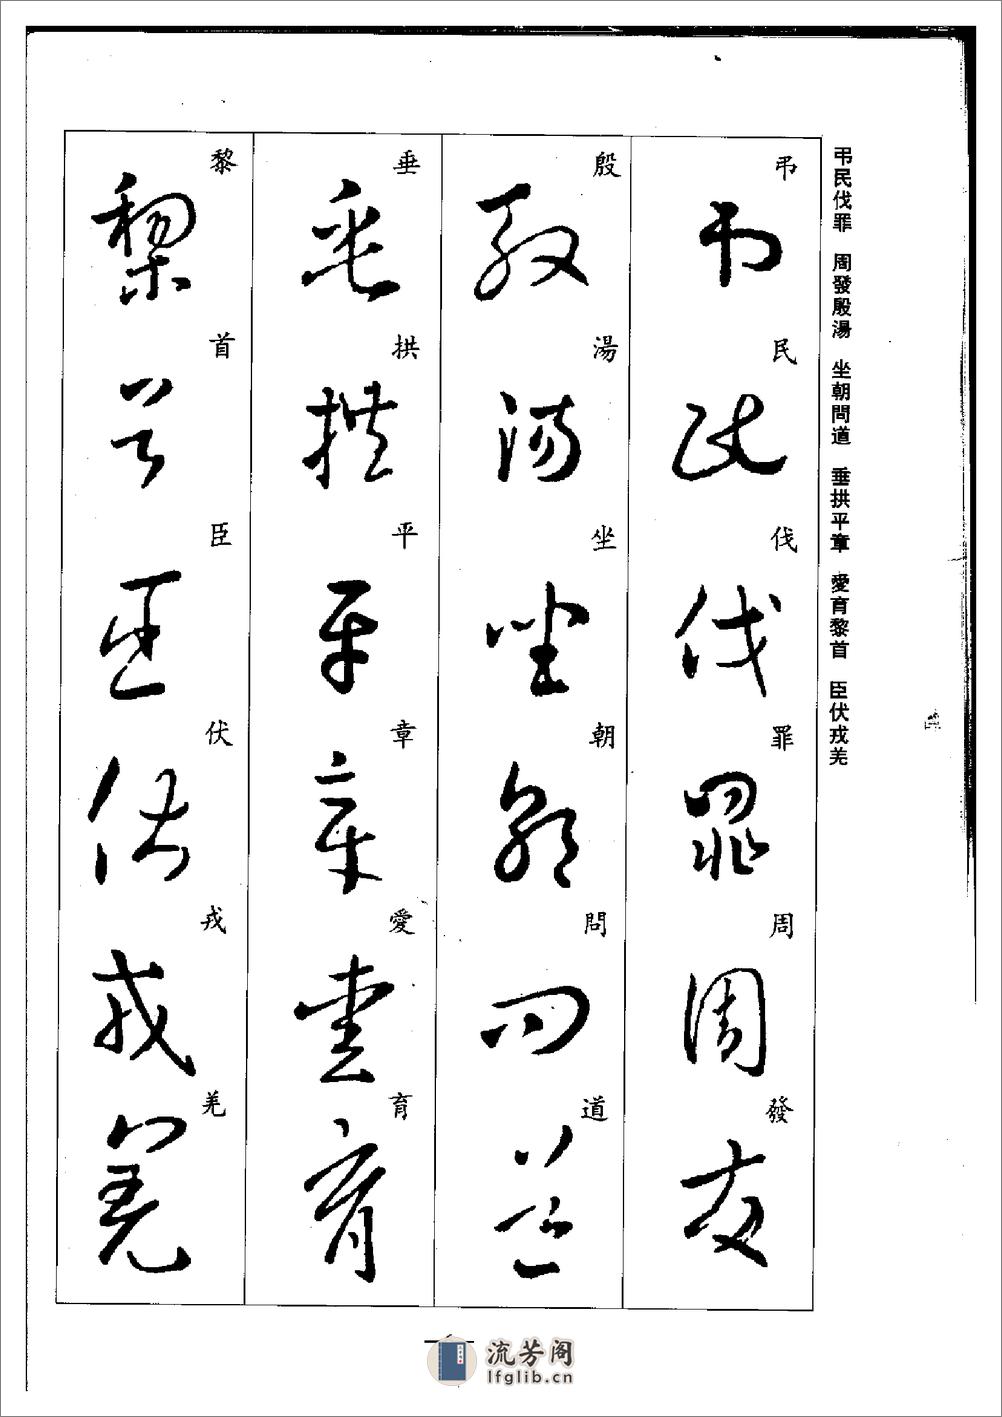 弔民伐罪　周發殷湯　坐朝問道　垂拱平章　愛育黎首　臣伏戎羌
弔民伐罪周發
殷湯坐朝問道
垂拱平章愛育
黎首臣伏戎羌
流芳阁
lfglib.cn